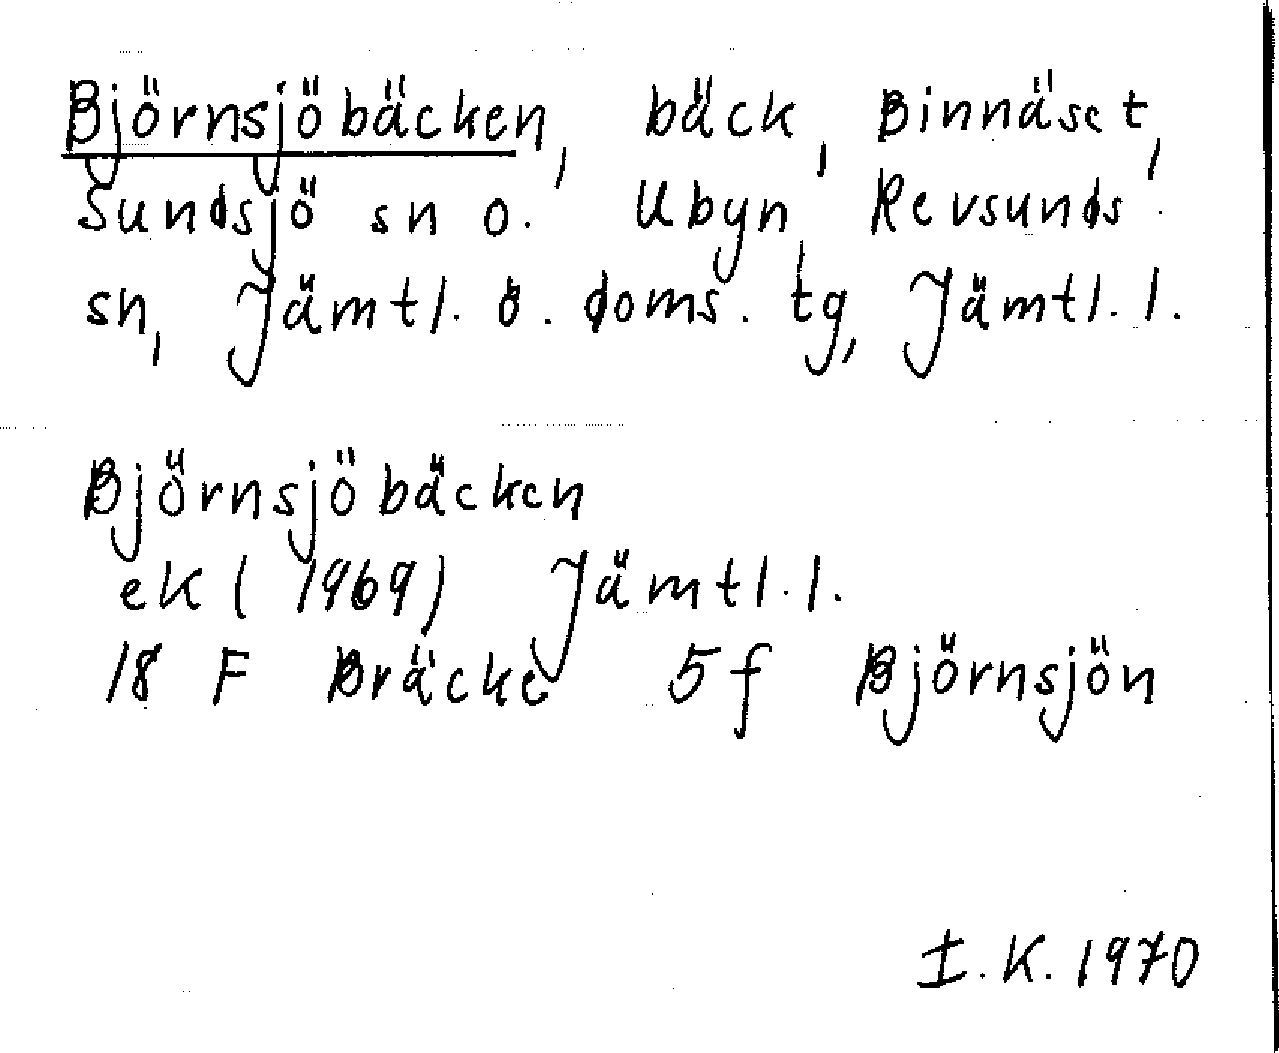 Björnsjöbäcken, bäck, Binnäset,
Sundsjö sn o. Ubyn, Revsunds
sn, Jämtl. ö. doms. tg, Jämtl. l.
Björnsjöbäcken
ek (1969) Jämtl. l.
18 F Bräcke 5f Björnsjön
I. K. 1970